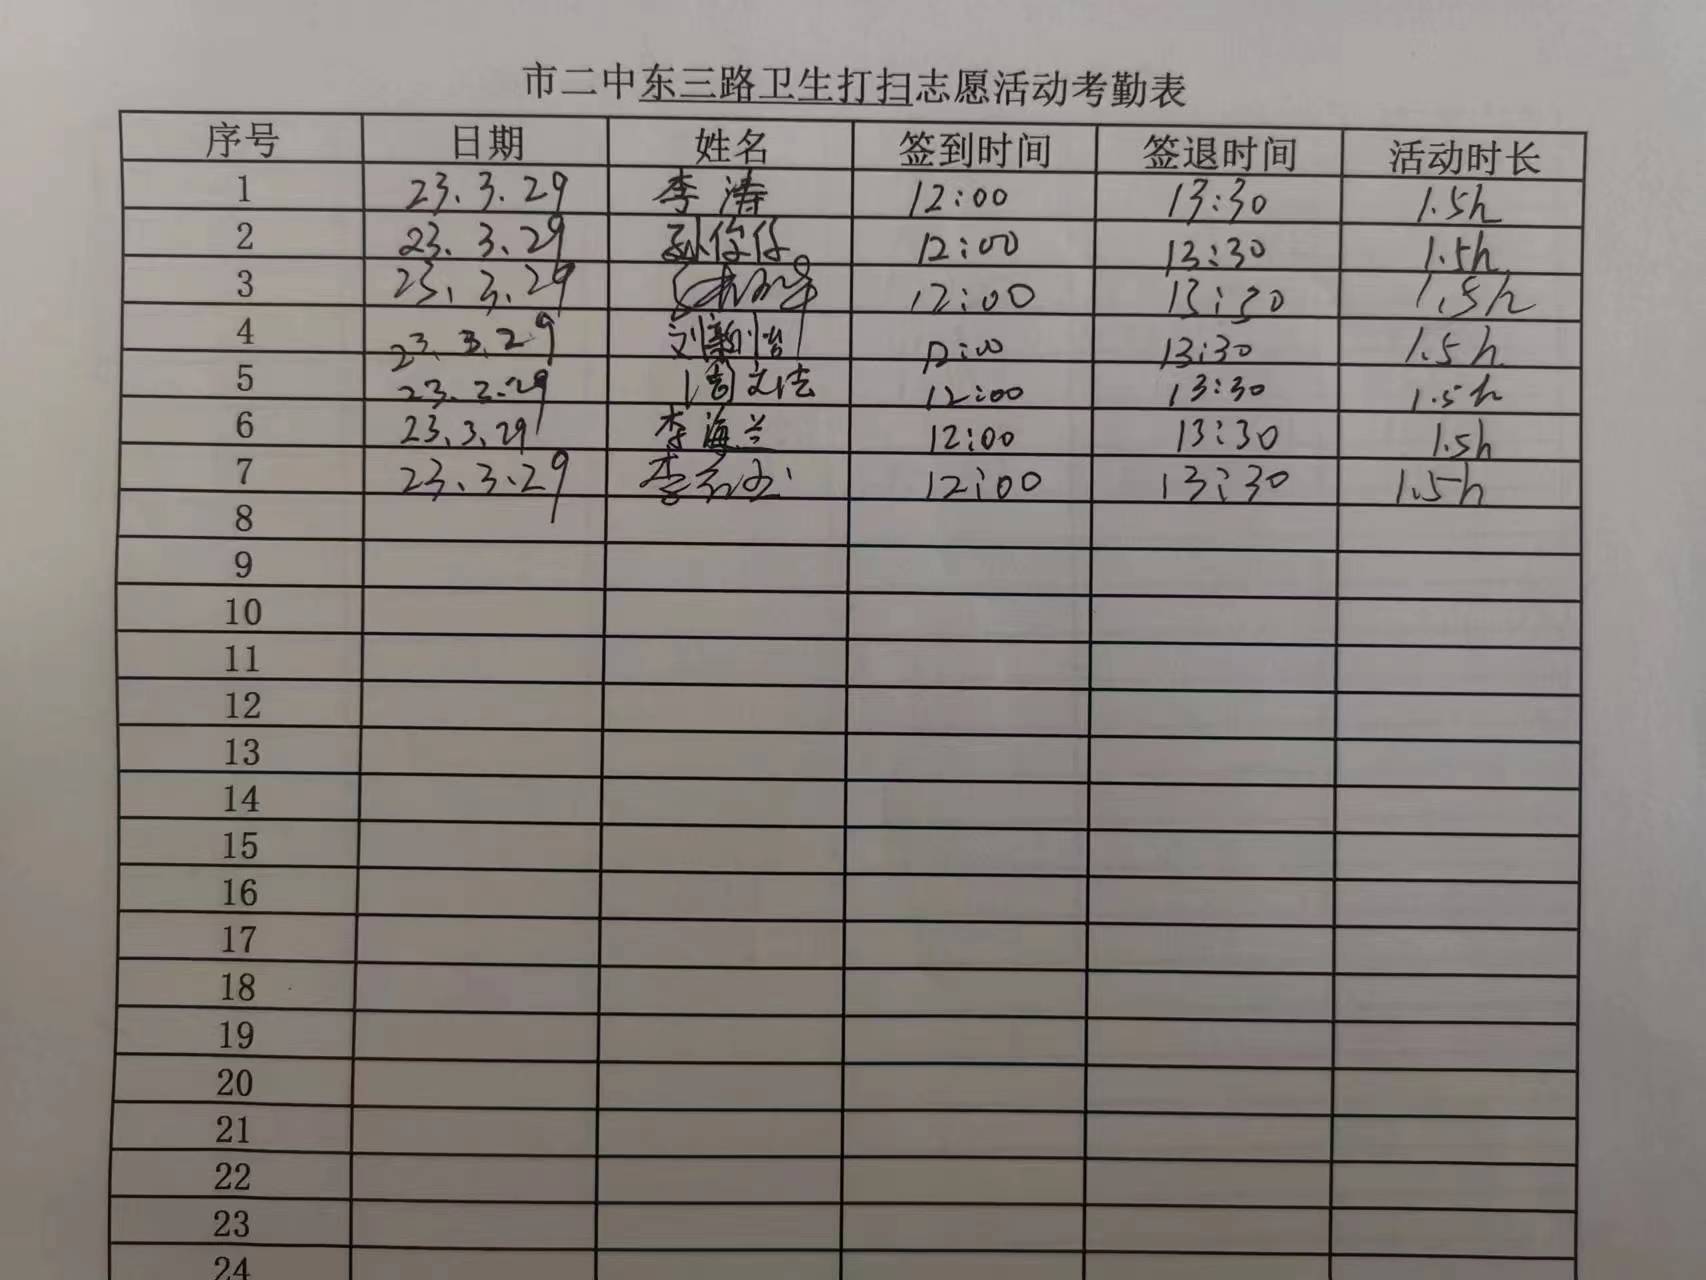 市二中东三路卫生打扫志愿活动考勤表
序号 日期 姓名 签到时间 签退时间 活动时长
1 23.3.29 李涛 12:00 13:30 1.5h
2 23.3.29 孙 仔 12:00 13:30 1.5h
3 23.3.29 12:00 13:30 1.5h
4 23.3.29 刘新怡 12:00 13:30 1.5h
5 23.3.29 周文洁 12:00 13:30 1.5h
6 23.3.29 李海兰 12:00 13:30 1.5h
7 23.3.29 李 12:00 13:30 1.5h
8
9
10
11
12
13
14
15
16
17
18
19
20
21
22
23
24